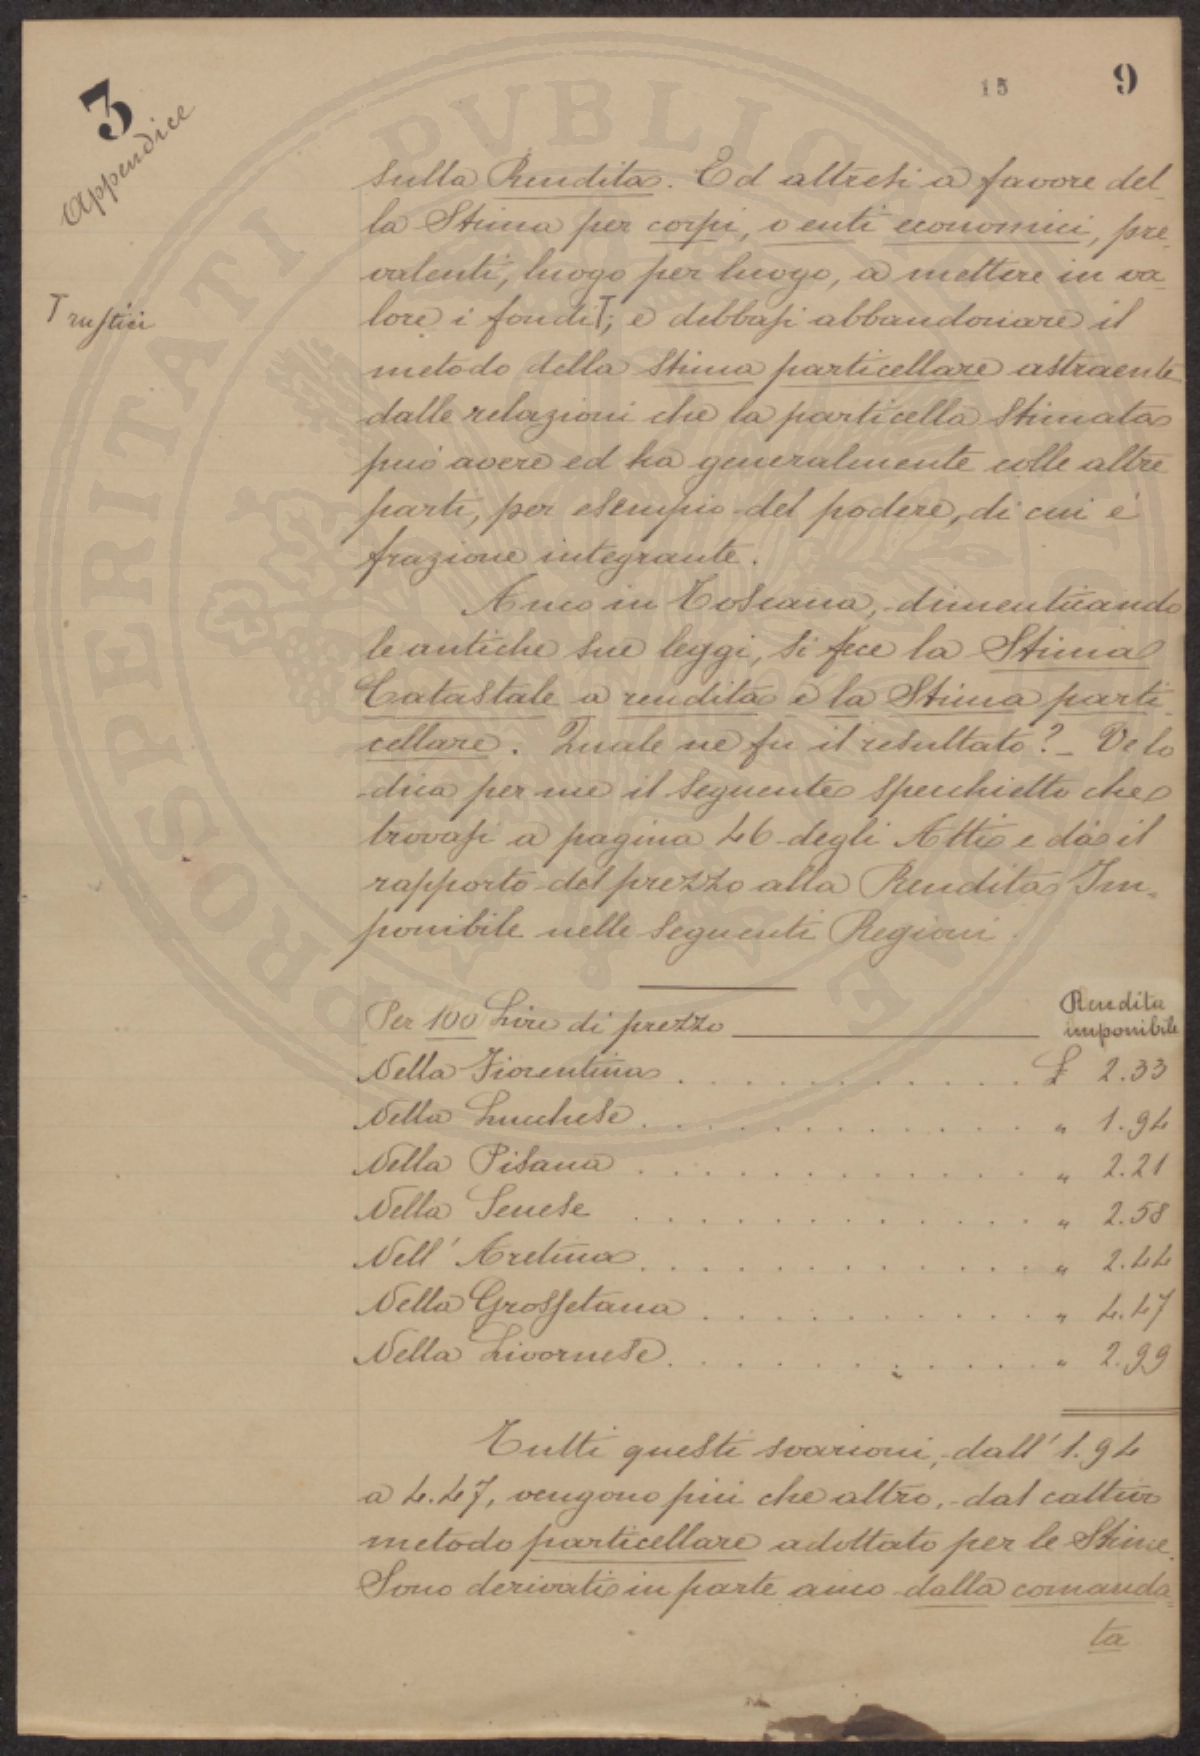 3
Appendice
15
9
sulla Rendita. Ed altresì a favore del-
la Stima per corpi, o enti economici, pre-
valenti, luogo per luogo, a mettere in va-
T rustici
lore i fondi T; e debbasi abbandonare il
metodo della stima particellare astraente
dalle relazioni che la particella stimata
può avere ed ha generalmente colle altre
parti, per esempio del podere, di cui è
frazione integrante.
Anco in Toscana, dimenticando
le antiche sue leggi, si fece la Stima
Catastale a rendita e la Stima parti-
cellare. Quale ne fu il resultato? - Ve lo
dica per me il seguente specchietto che
trovasi a pagina 46 degli Atti e dà il
rapporto del prezzo alla Rendita Im-
ponibile nelle seguenti Regioni.
Per 100 Lire di prezzo
Rendita
imponibile
Nella Fiorentina . . . . . . . . . . . £ 2.33
Nella Lucchese . . . . . . . . . . . . " 1.94
Nella Pisana . . . . . . . . . . . . " 2.21
Nella Senese . . . . . . . . . . . . " 2.58
Nell' Aretina . . . . . . . . . . . . " 2.44
Nella Grossetana . . . . . . . . . . " 4.47
Nella Livornese . . . . . . . . . . . " 2.99
Tutti questi svarioni, dall' 1.94
a 4.47, vengono più che altro, dal cattivo
metodo particellare adottato per le Stime.
Sono derivati in parte anco dalla comanda-
ta
PROSPERITATI PVBLICAE